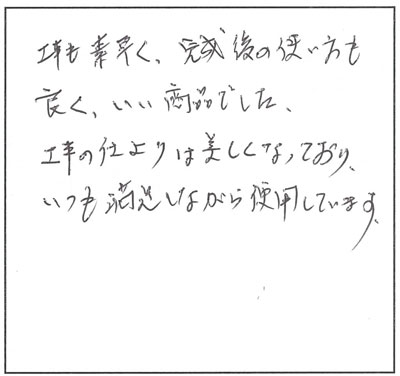 工事も素早く、完成後の使い方も
良く、いい商品でした、
工事の仕上よりは美しくなっており、
いつも満足しながら使用しています。